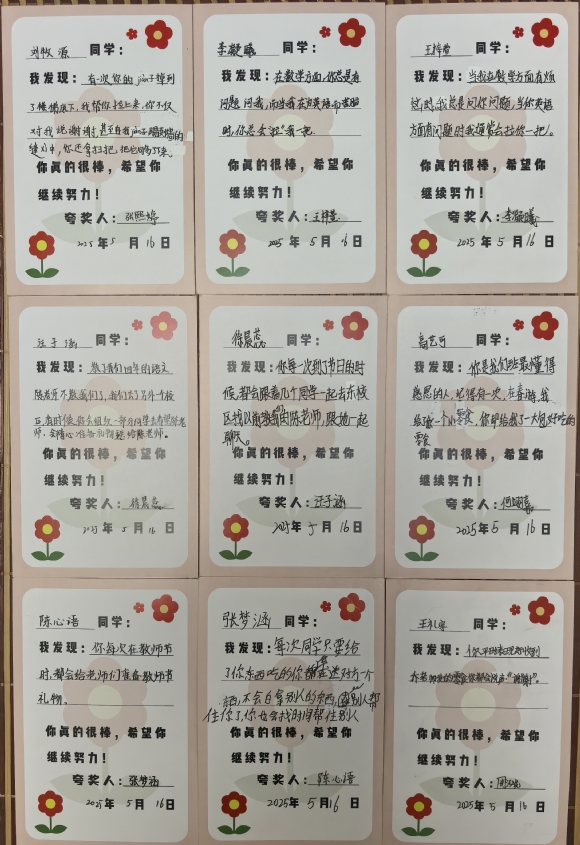 刘牧源 同学：
我发现：有一次你的jiàn子掉到
了楼梯底下，我帮你捡上来，你不仅
对我说谢谢，甚至
缝隙中，你还拿扫把，把它
你真的很棒，希望你
继续努力！
夸奖人：张熙婷
2025年5月16日
李凝曦 同学：
我发现：在数学方面，你总是有
问题问我，而当我在英语
时，你总会拉我一把。
你真的很棒，希望你
继续努力！
夸奖人：王梓萱
2025年5月16日
王梓萱 同学：
我发现：当我在数学方面有烦
恼时我总是问你问题，当你英语
方面有问题时我通常会拉你一把。
你真的很棒，希望你
继续努力！
夸奖人：李凝曦
2025年5月16日
汪子涵 同学：
我发现：教了我们四年的语文
陈老师不教我们了，她们去了另外一个校
区，有时候，你会组织一部分同学去看望陈老
师、会精心准备礼物送给陈老师。
你真的很棒，希望你
继续努力！
夸奖人：徐晨蕊
2025年5月16日
徐晨蕊 同学：
我发现：你每一次到了节日的时
候，都会跟着几个同学一起去东校
区找以前教我们的陈老师，跟她一起
聊天。
你真的很棒，希望你
继续努力！
夸奖人：汪子涵
2025年5月16日
高艺可 同学：
我发现：你是我们班最懂得
感恩的人，记得有一次，在春游，我
给了你一个小零食，你却给我了一大包好吃的
零食
你真的很棒，希望你
继续努力！
夸奖人：何翊嘉
2025年5月16日
陈心语 同学：
我发现：你每次在教师节
时，都会给老师们准备教师节
礼物、
你真的很棒，希望你
继续努力！
夸奖人：张梦涵
2025年5月16日
张梦涵 同学：
我发现：每次同学只要给
了你东西吃的你都会送对方一个
东西，不会白拿别人的东西，别人帮
住你了，你也会找时间帮住别人
你真的很棒，希望你
继续努力！
夸奖人：陈心语
2025年5月16日
同学：
我发现：你平时表现好收到
老师发的零食你都会说声“谢谢”。
你真的很棒，希望你
继续努力！
夸奖人：
2025年5月16日